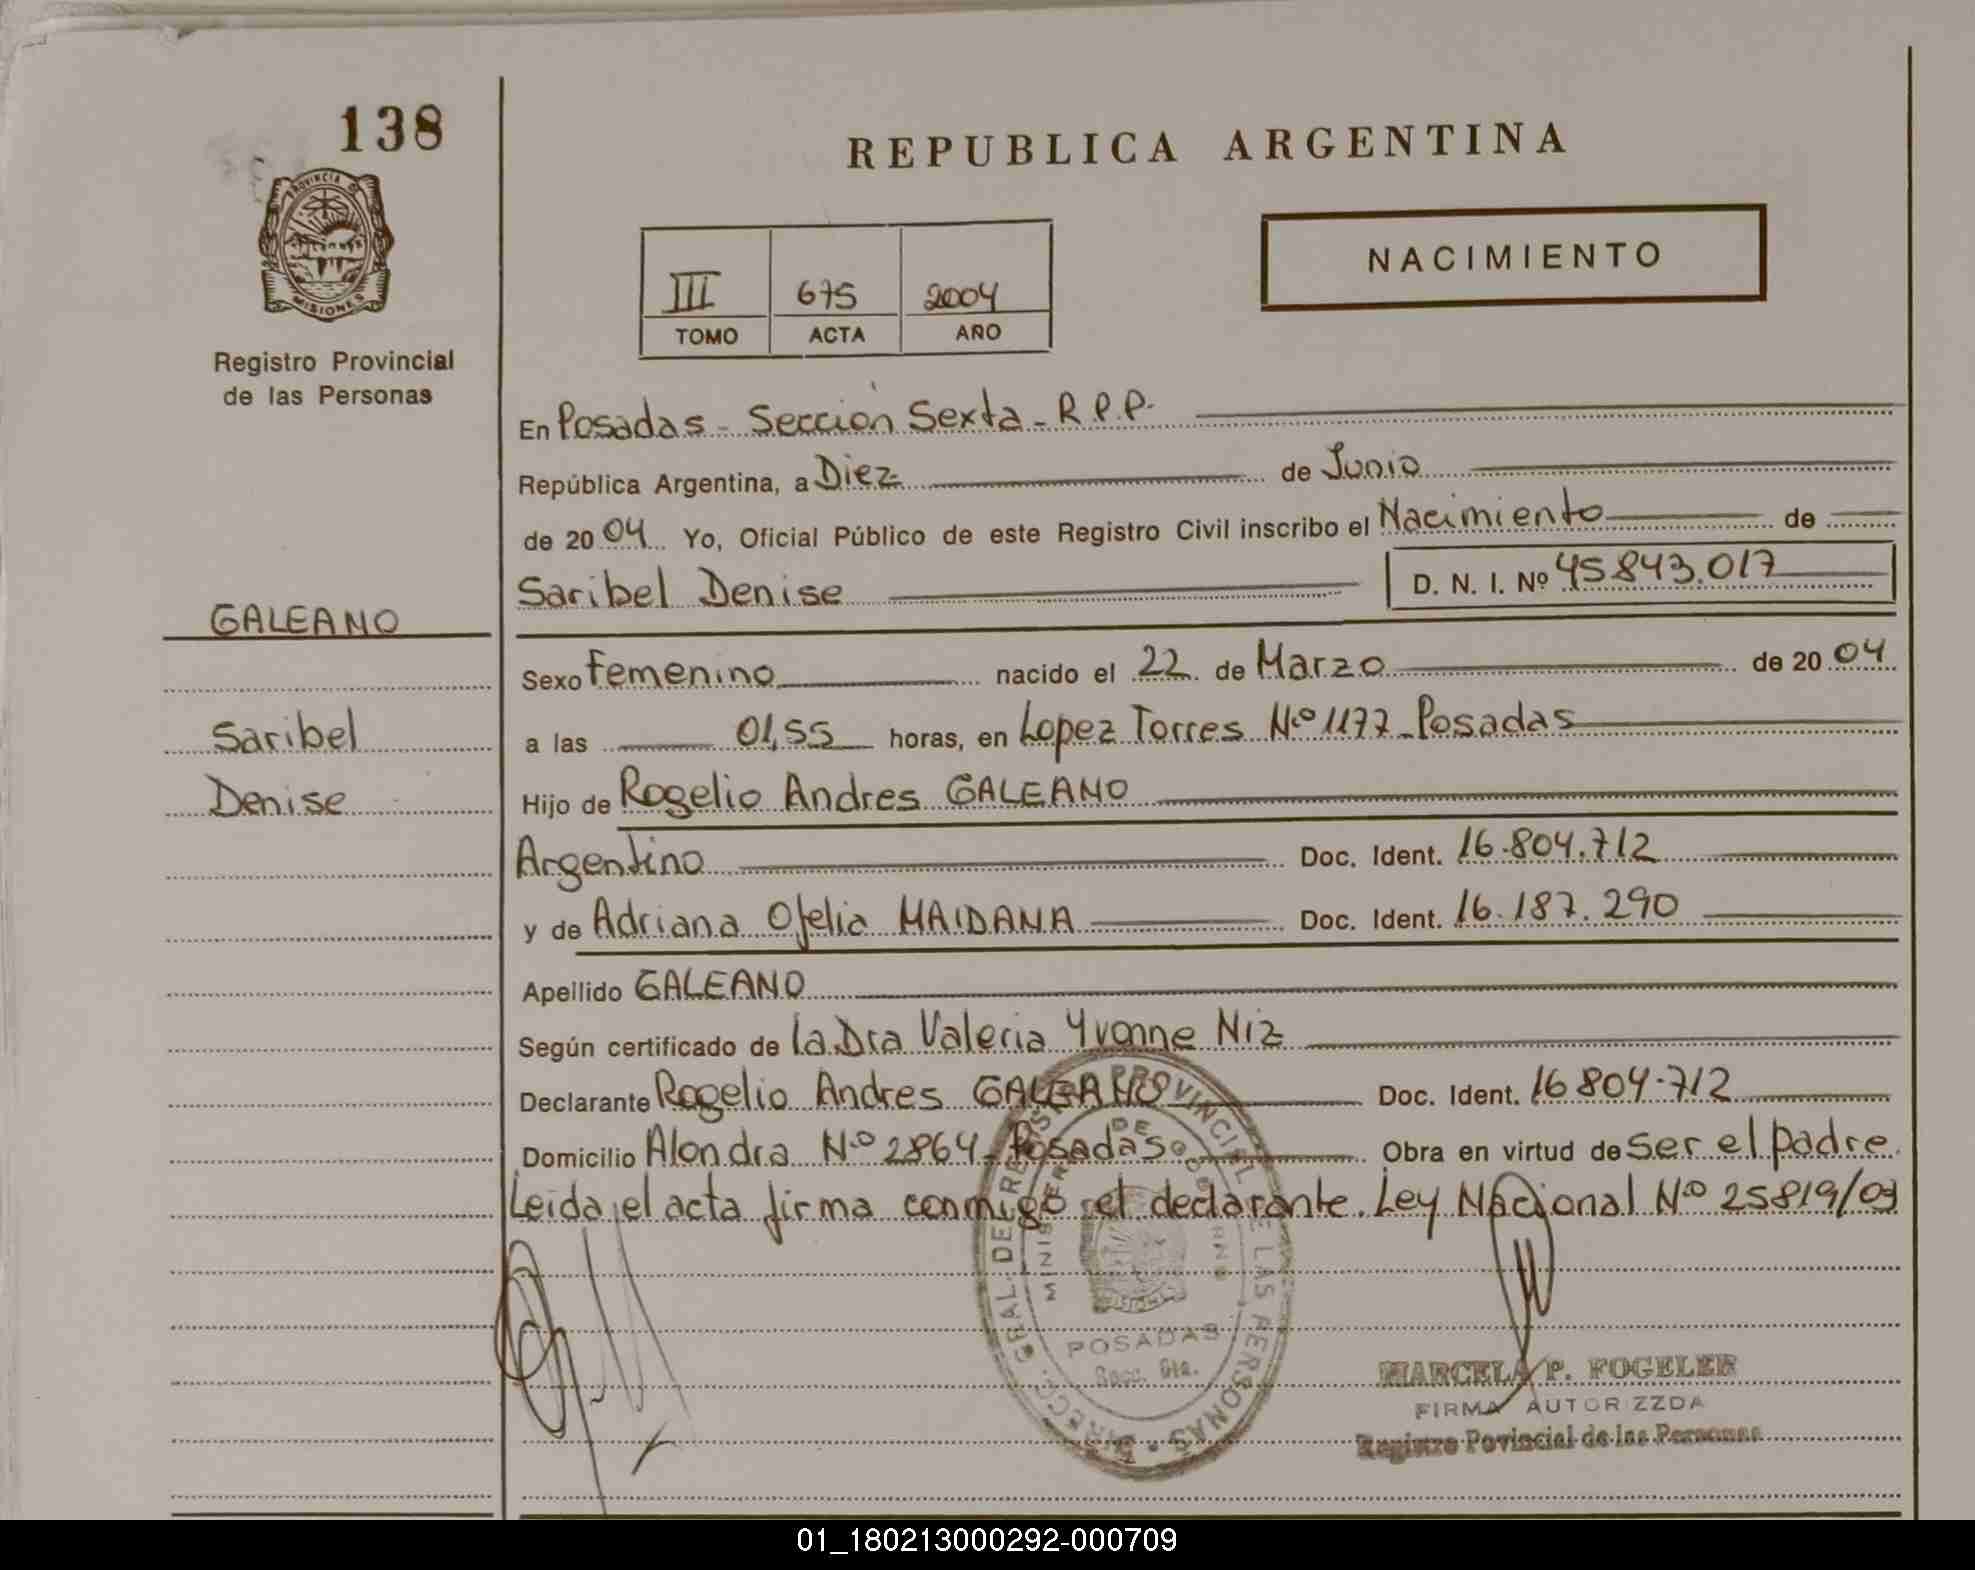 138
REPUBLICA ARGENTINA
NACIMIENTO
PROVINCIA DE
MISIONES
Registro Provincial
de las Personas
III 675 2004
TOMO ACTA AÑO
En Posadas - Sección Sexta - R.P.P.
República Argentina, a Diez de Junio
de 2004 Yo, Oficial Público de este Registro Civil inscribo el Nacimiento de
Saribel Denise D. N. I. Nº 45843.017
GALEANO
Saribel
Denise
Sexo Femenino nacido el 22 de Marzo de 2004
a las 01,55 horas, en Lopez Torres Nº 1177 - Posadas
Hijo de Rogelio Andres GALEANO
Argentino Doc. Ident. 16.804.712
y de Adriana Ofelia MAIDANA Doc. Ident. 16.187.290
Apellido GALEANO
Según certificado de La Dra Valeria Yvonne Niz
Declarante Rogelio Andres GALEANO Doc. Ident. 16804.712
Domicilio Alondra Nº 2864 - Posadas Obra en virtud de ser el padre.
Leida el acta firma conmigo el declarante. Ley Nacional Nº 25819/03
POSADAS
Secc. 6ta.
MARCELA P. FOGELER
FIRMA AUTORIZZDA
Registro Povincial de las Personas
01_180213000292-000709